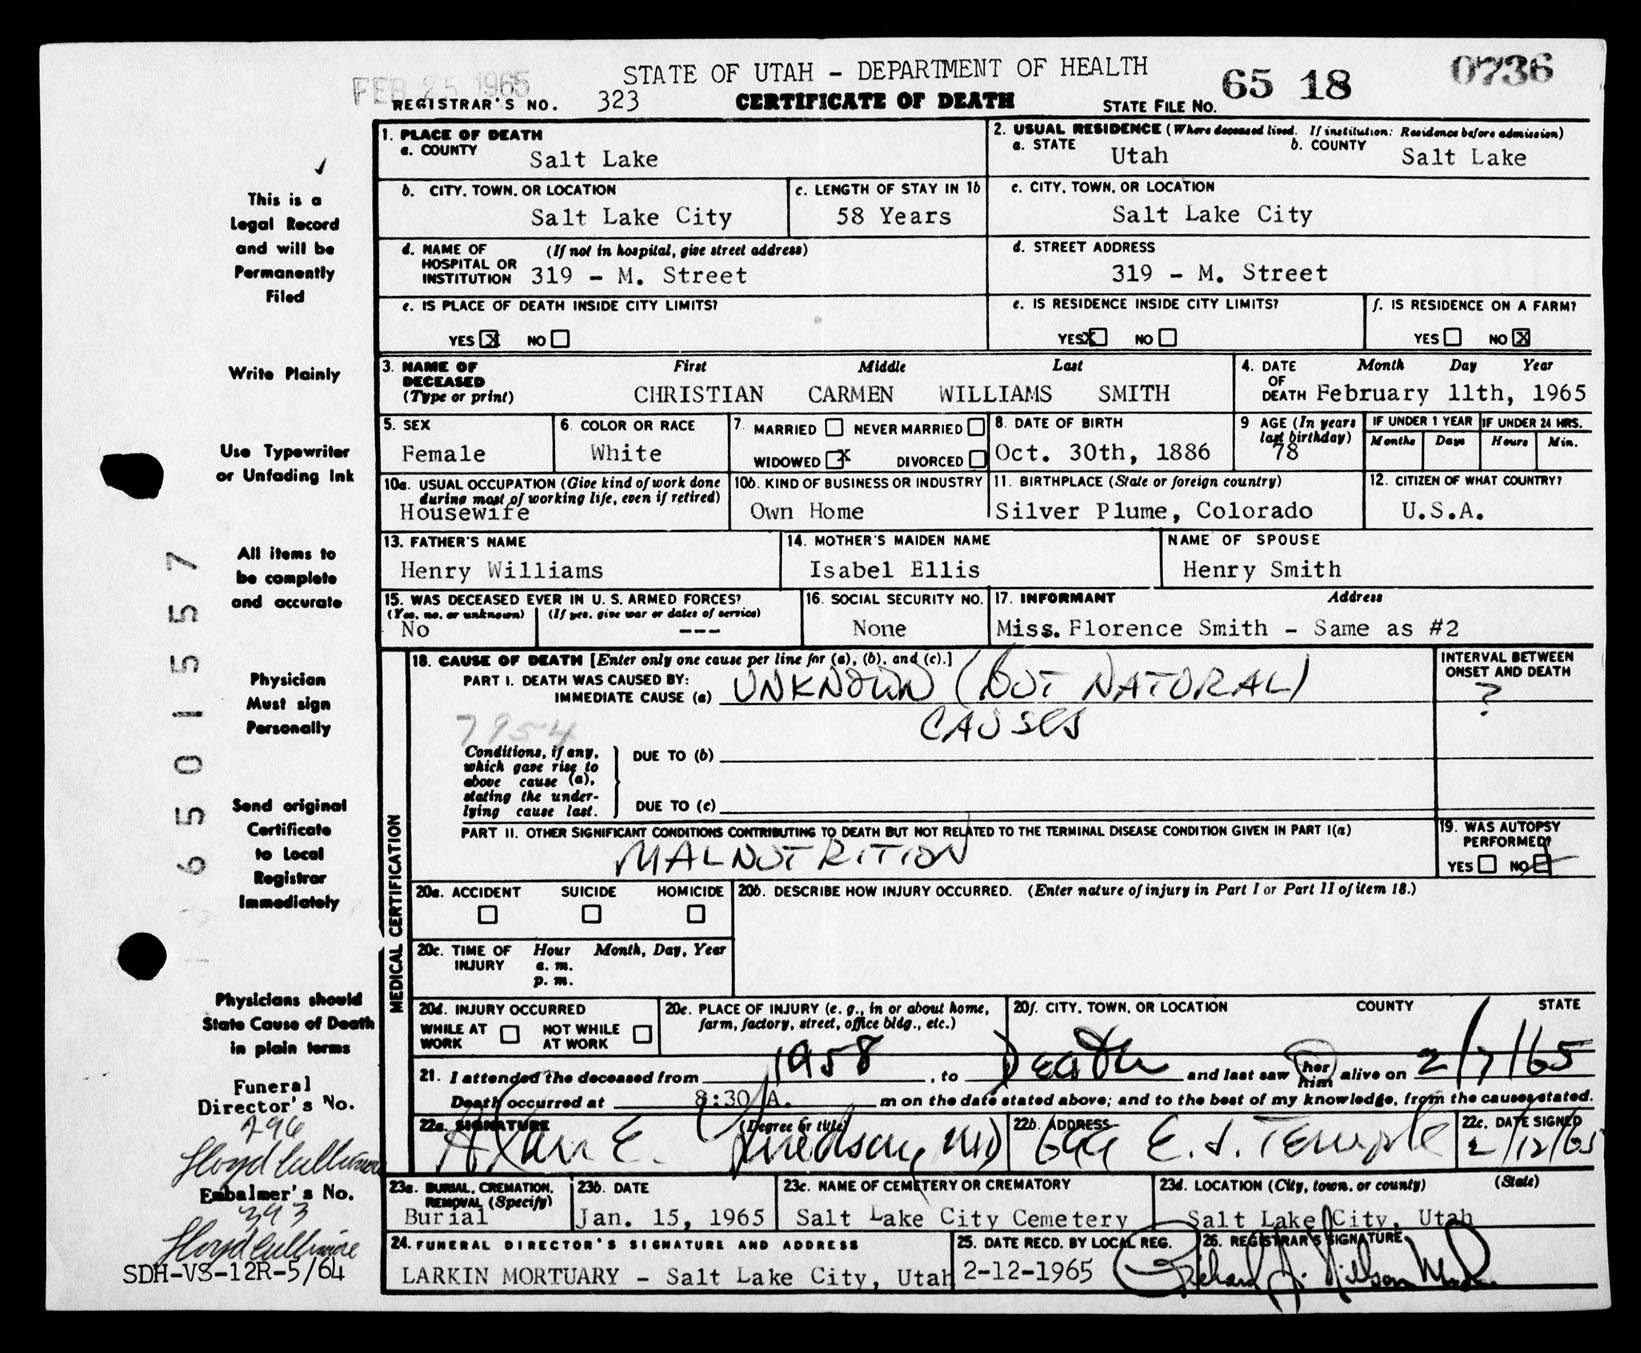 FEB 25 1965
STATE OF UTAH - DEPARTMENT OF HEALTH
65 18 0736
REGISTRAR'S NO. 323 CERTIFICATE OF DEATH STATE FILE NO.
This is a
Legal Record
and will be
Permanently
Filed
Write Plainly
Use Typewriter
or Unfading Ink
All items to
be complete
and accurate
Physician
Must sign
Personally
Send original
Certificate
to Local
Registrar
Immediately
Physicians should
State Cause of Death
in plain terms
Funeral
Director's No.
296
Embalmer's No.
393
SDH-VS-12R-5/64
6501557
1. PLACE OF DEATH
a. COUNTY Salt Lake
2. USUAL RESIDENCE (Where deceased lived. If institution: Residence before admission)
a. STATE Utah b. COUNTY Salt Lake
b. CITY, TOWN, OR LOCATION
Salt Lake City
c. LENGTH OF STAY IN 1b
58 Years
c. CITY, TOWN, OR LOCATION
Salt Lake City
d. NAME OF (If not in hospital, give street address)
HOSPITAL OR
INSTITUTION 319 - M. Street
d. STREET ADDRESS
319 - M. Street
e. IS PLACE OF DEATH INSIDE CITY LIMITS?
YES X NO
e. IS RESIDENCE INSIDE CITY LIMITS?
YES X NO
f. IS RESIDENCE ON A FARM?
YES NO X
3. NAME OF First Middle Last
DECEASED
(Type or print) CHRISTIAN CARMEN WILLIAMS SMITH
4. DATE Month Day Year
OF
DEATH February 11th, 1965
5. SEX
Female
6. COLOR OR RACE
White
7. MARRIED NEVER MARRIED
WIDOWED X DIVORCED
8. DATE OF BIRTH
Oct. 30th, 1886
9 AGE (In years
last birthday)
78
IF UNDER 1 YEAR IF UNDER 24 HRS.
Months Days Hours Min.
10a. USUAL OCCUPATION (Give kind of work done
during most of working life, even if retired)
Housewife
10b. KIND OF BUSINESS OR INDUSTRY
Own Home
11. BIRTHPLACE (State or foreign country)
Silver Plume, Colorado
12. CITIZEN OF WHAT COUNTRY?
U.S.A.
13. FATHER'S NAME
Henry Williams
14. MOTHER'S MAIDEN NAME
Isabel Ellis
NAME OF SPOUSE
Henry Smith
15. WAS DECEASED EVER IN U. S. ARMED FORCES?
(Yes, no, or unknown) (If yes, give war or dates of service)
No ---
16. SOCIAL SECURITY NO.
None
17. INFORMANT Address
Miss. Florence Smith - Same as #2
MEDICAL CERTIFICATION
18. CAUSE OF DEATH [Enter only one cause per line for (a), (b), and (c).]
PART I. DEATH WAS CAUSED BY:
IMMEDIATE CAUSE (a) UNKNOWN (BUT NATURAL)
CAUSES
INTERVAL BETWEEN
ONSET AND DEATH
?
7954
Conditions, if any,
which gave rise to
above cause (a),
stating the under-
lying cause last.
DUE TO (b)
DUE TO (c)
PART II. OTHER SIGNIFICANT CONDITIONS CONTRIBUTING TO DEATH BUT NOT RELATED TO THE TERMINAL DISEASE CONDITION GIVEN IN PART I(a)
MALNUTRITION
19. WAS AUTOPSY
PERFORMED?
YES NO
20a. ACCIDENT SUICIDE HOMICIDE
20b. DESCRIBE HOW INJURY OCCURRED. (Enter nature of injury in Part I or Part II of item 18.)
20c. TIME OF Hour Month, Day, Year
INJURY a. m.
p. m.
20d. INJURY OCCURRED
WHILE AT WORK NOT WHILE AT WORK
20e. PLACE OF INJURY (e. g., in or about home,
farm, factory, street, office bldg., etc.)
20f. CITY, TOWN, OR LOCATION COUNTY STATE
21. I attended the deceased from 1958, to Death and last saw her him alive on 2/7/65
Death occurred at 8:30 A. m on the date stated above; and to the best of my knowledge, from the causes stated.
22a. SIGNATURE (Degree or title)
MD
22b. ADDRESS
E. S. Temple
22c. DATE SIGNED
2/12/65
23a. BURIAL, CREMATION,
REMOVAL (Specify)
Burial
23b. DATE
Jan. 15, 1965
23c. NAME OF CEMETERY OR CREMATORY
Salt Lake City Cemetery
23d. LOCATION (City, town, or county) (State)
Salt Lake City, Utah
24. FUNERAL DIRECTOR'S SIGNATURE AND ADDRESS
LARKIN MORTUARY - Salt Lake City, Utah
25. DATE RECD. BY LOCAL REG.
2-12-1965
26. REGISTRAR'S SIGNATURE